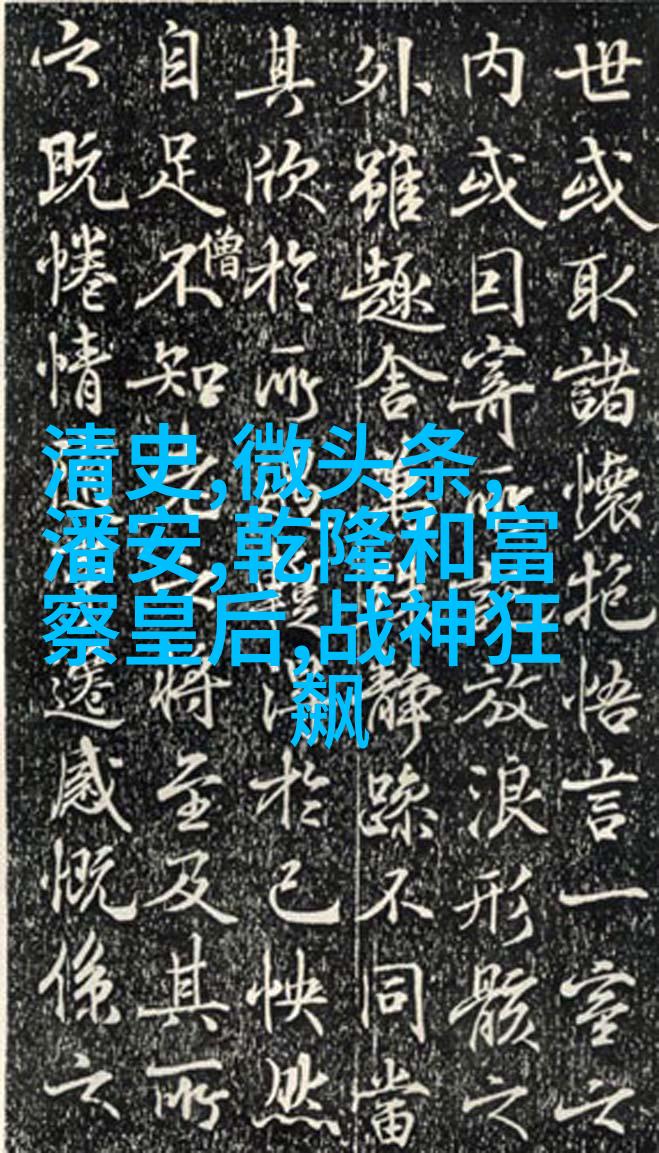 世或取諸懷抱悟言一室之
内或因寄所託放浪形骸之
外雖趣舍萬静躁不同當
其欣於所得於己怏然
自足不知老將至及其所
僧
之既惓情遷感慨係之
清史,微头条,
潘安,乾隆和富
察皇后,战神狂
飙